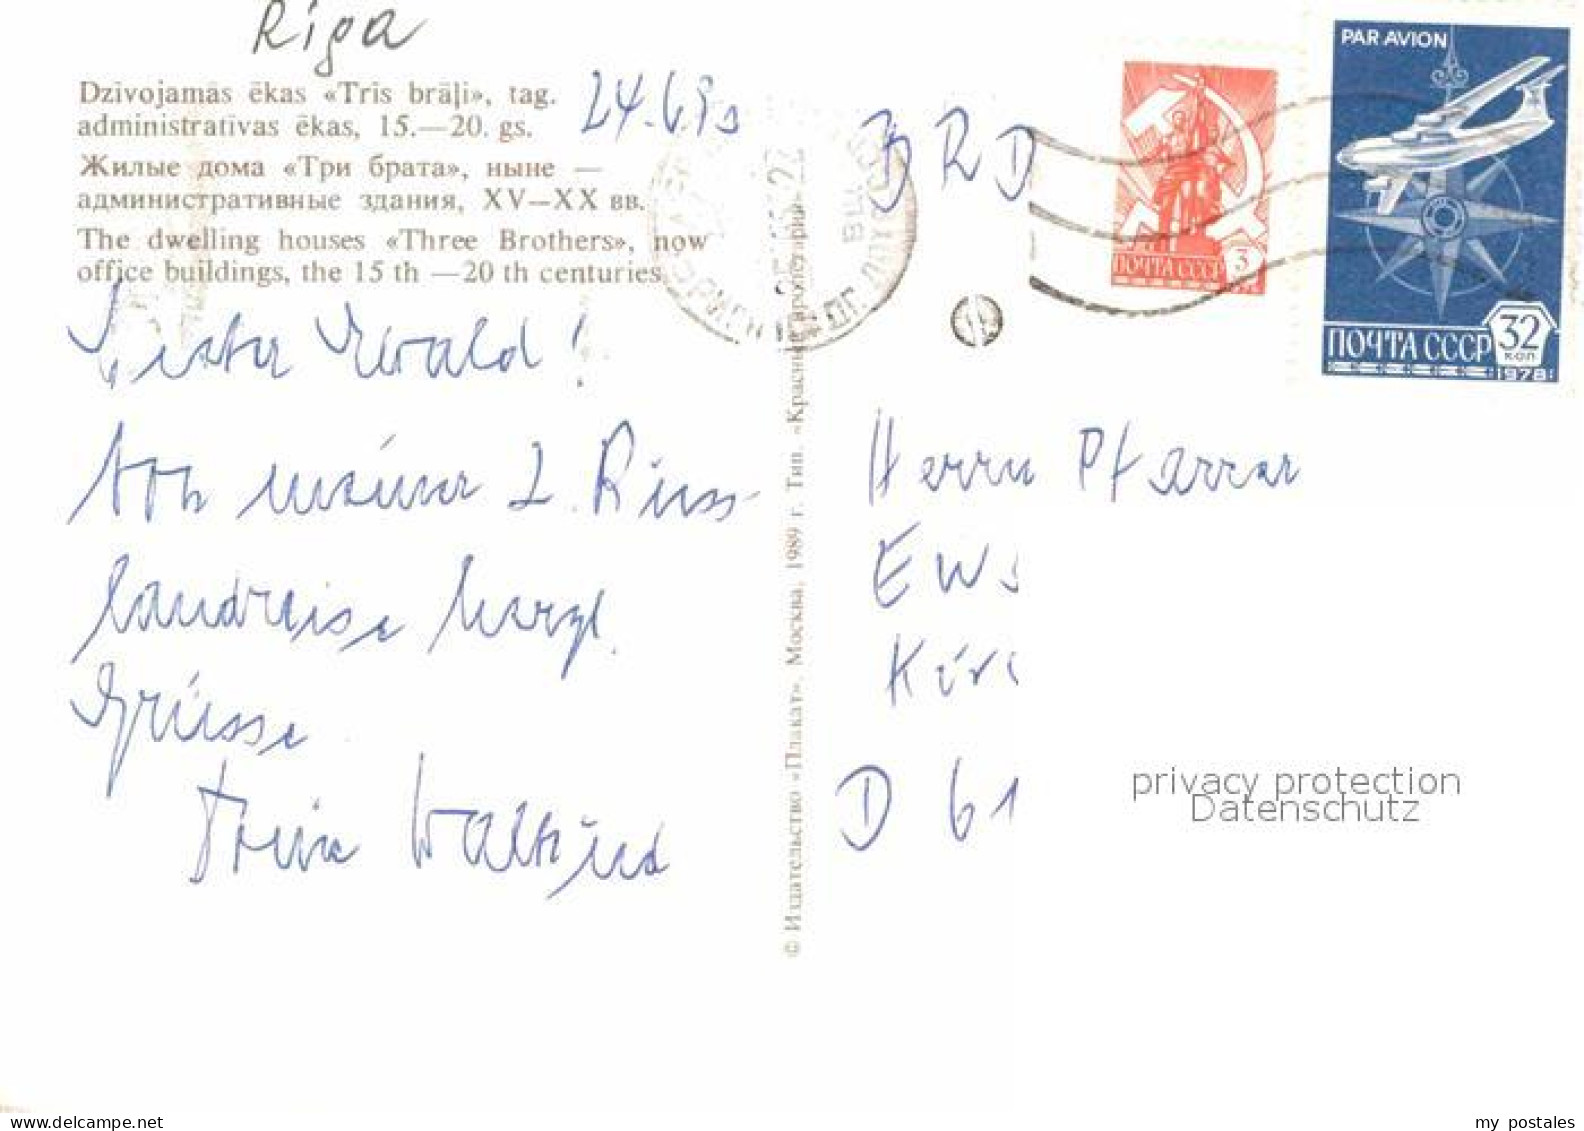 Riga
Dzīvojamās ēkas «Trīs brāļi», tag.
administratīvas ēkas, 15.—20. gs.
24.6.90
Жилые дома «Три брата», ныне —
административные здания, XV—XX вв.
The dwelling houses «Three Brothers», now
office buildings, the 15 th —20 th centuries
Lieber Ewald!
Von meiner 2. Russ-
landreise herzl.
Grüsse
BRD
PAR AVION
ПОЧТА СССР 3
ПОЧТА СССР 32
КОП
1978
Herrn Pfarrer
D 61
© Издательство «Плакат». Москва, 1989 г. Тип. «Красный пролетарий»
privacy protection
Datenschutz
my postales